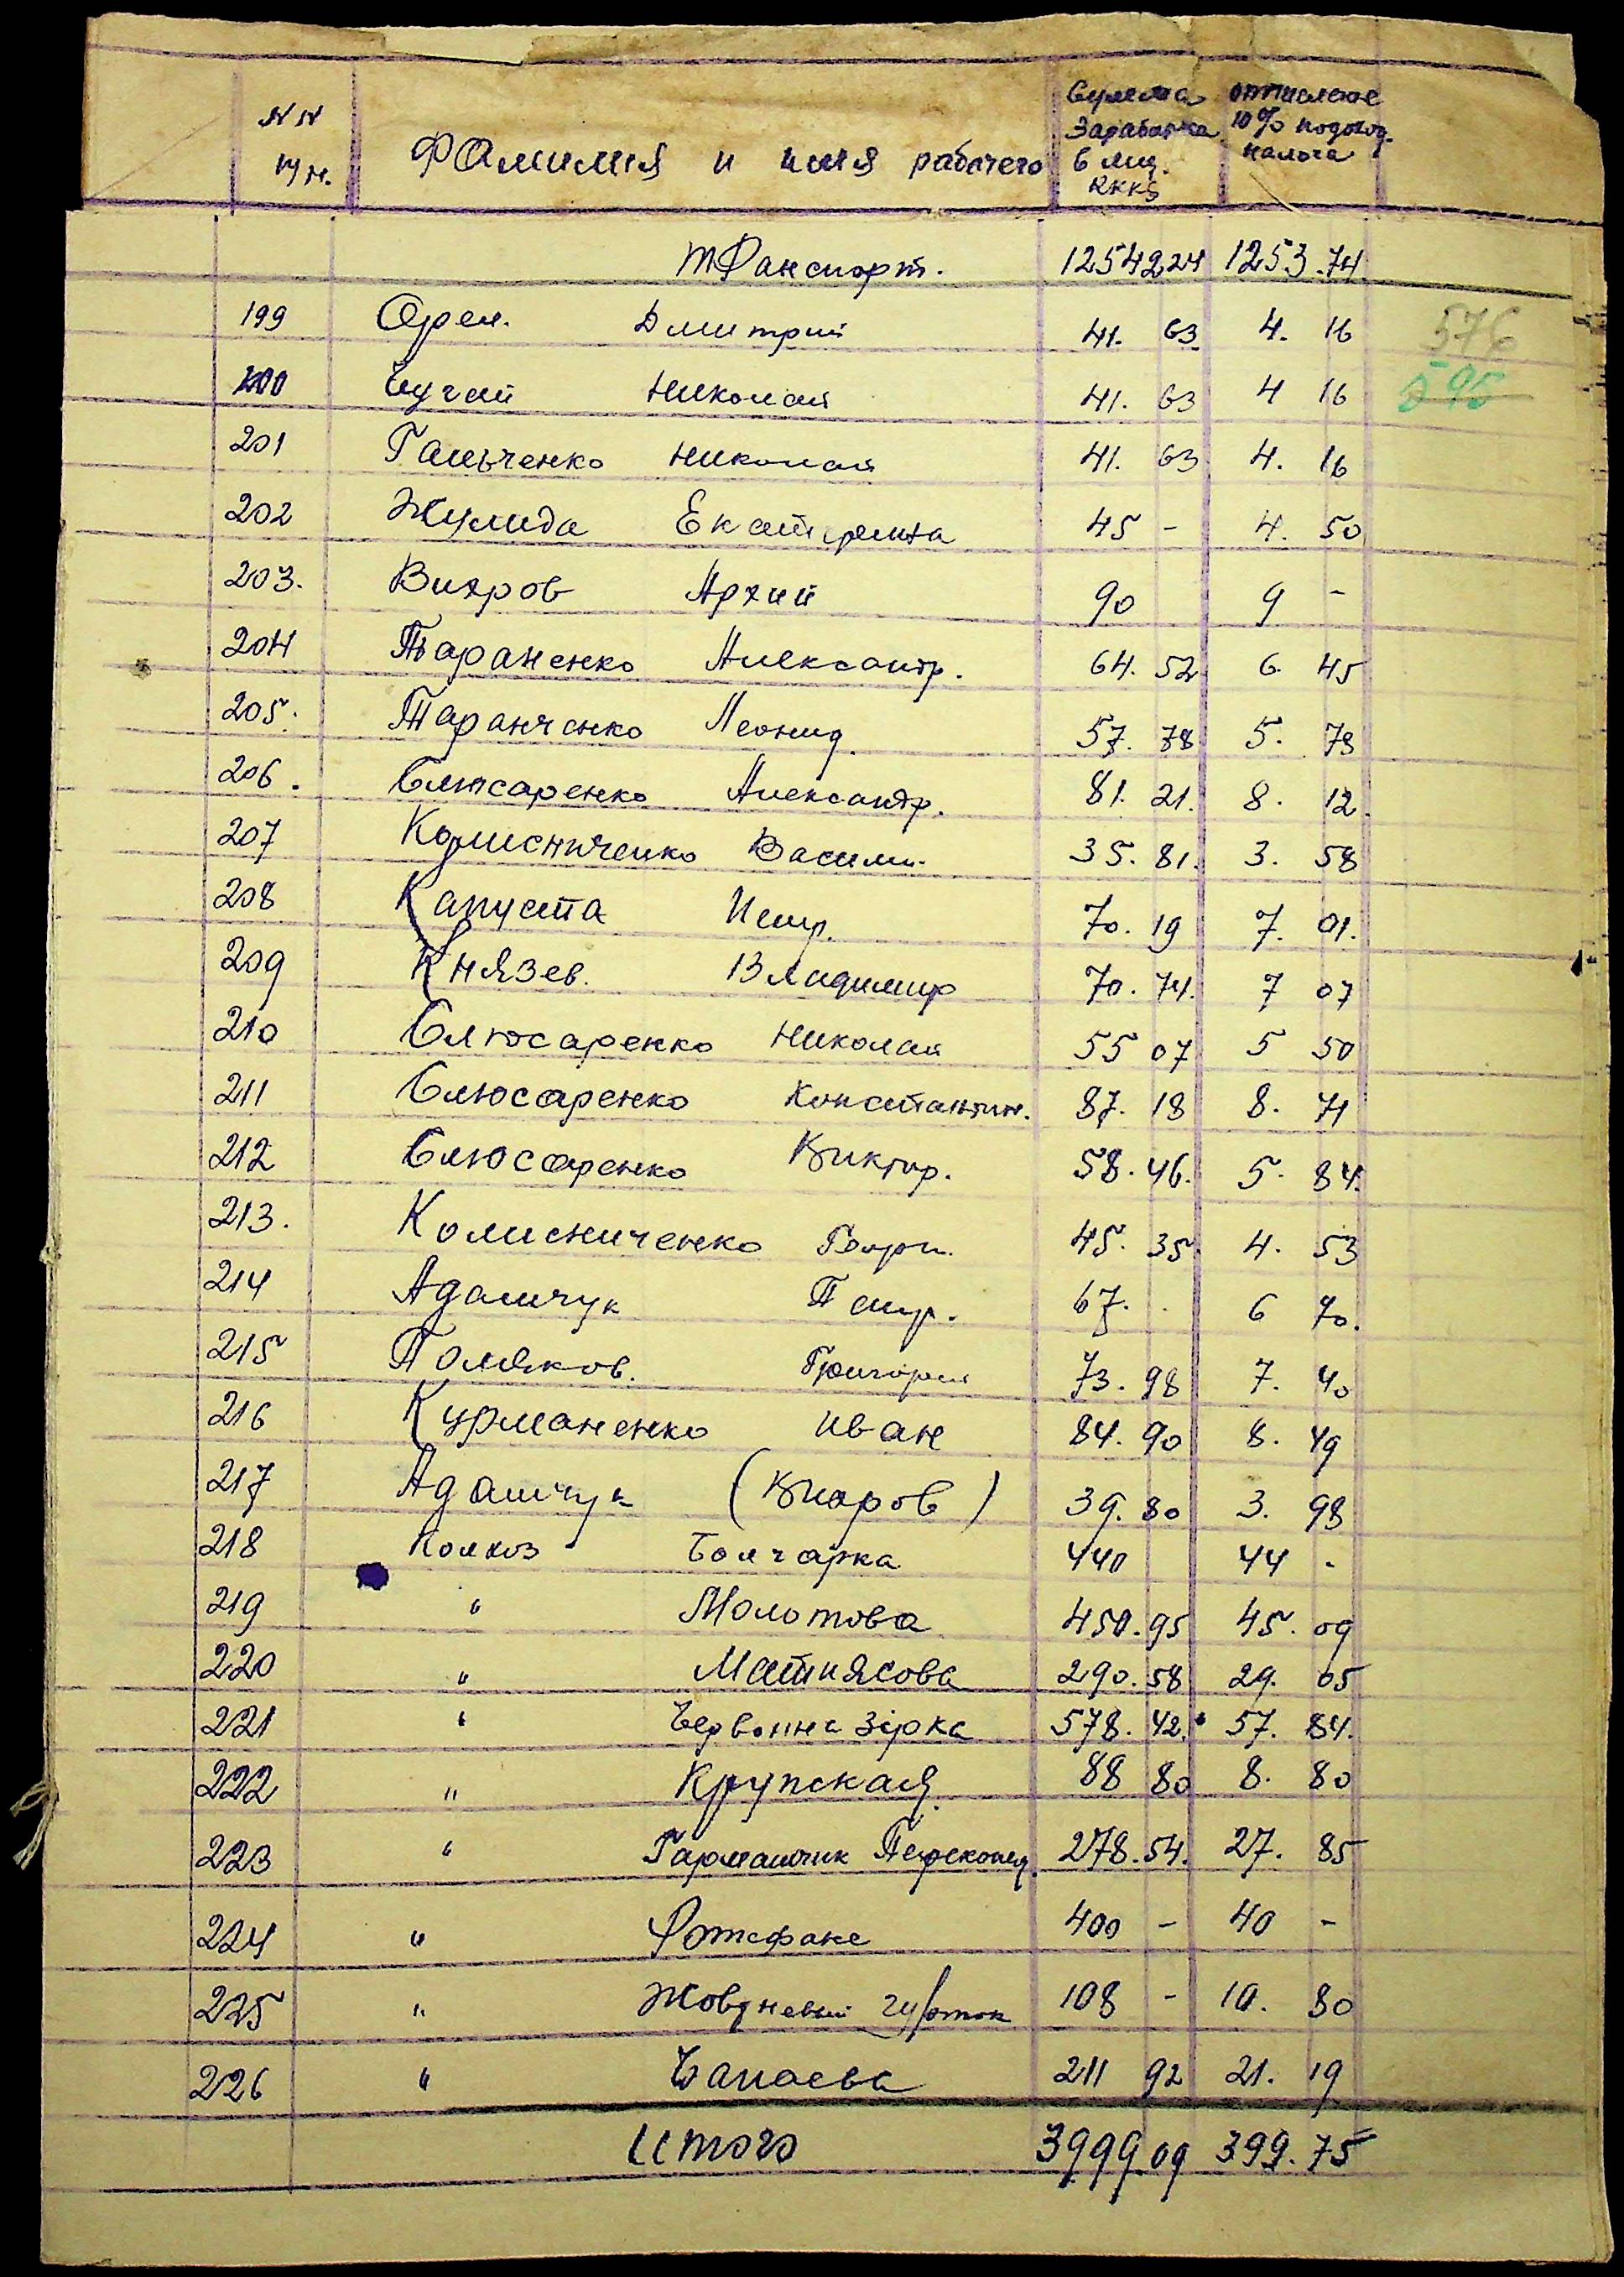 NN
пн.
Фамилия и имя рабочего
Сумма
Заработка
в мц.
RKKS
отчисление
10% подоход.
налога
транспорт. 12542 24 1253.74
199 Орел. Дмитрий 41. 63 4. 16
576
200 Чучай Николай 41. 63 4 16
595
201 Гальченко Николай 41. 63 4. 16
202 Жулида Екатерина 45 - 4. 50
203. Вихров Архип 90 9 -
204 Тараненко Александр. 64. 52 6. 45
205. Таранченко Леонид 57. 78 5. 78
206. Слюсаренко Александр. 81. 21. 8. 12.
207 Колисниченко Василий 35. 81. 3. 58
208 Капуста Петр. 70. 19 7. 01.
209 Князев. Владимир 70. 74. 7 07
210 Слюсаренко Николай 55 07 5 50
211 Слюсаренко Константин. 87. 18 8. 71
212 Слюсаренко Виктор. 58. 46. 5. 84.
213. Колисниченко Георги. 45. 35. 4. 53
214 Адамчук Петр. 67. 6 70.
215 Поляков. Григорий 73. 98 7. 40
216 Курманенко Иван 84. 90 8. 49
217 Адамчук (Вихров) 39. 80 3. 98
218 Колхоз Болгарка 440 44 -
219 " Молотова 450. 95 45. 09
220 " Матиясова 290. 58 29. 05
221 " Червонна Зірка 578. 42. 57. 84.
222 " Крупская 88 80 8. 80
223 " Гармашчик Перекопец. 278. 54. 27. 85
224 " Ротефане 400 - 40 -
225 " Жовдневый 108 - 10. 80
226 " Чапаева 211 92 21. 19
Итого 3999 09 399. 75